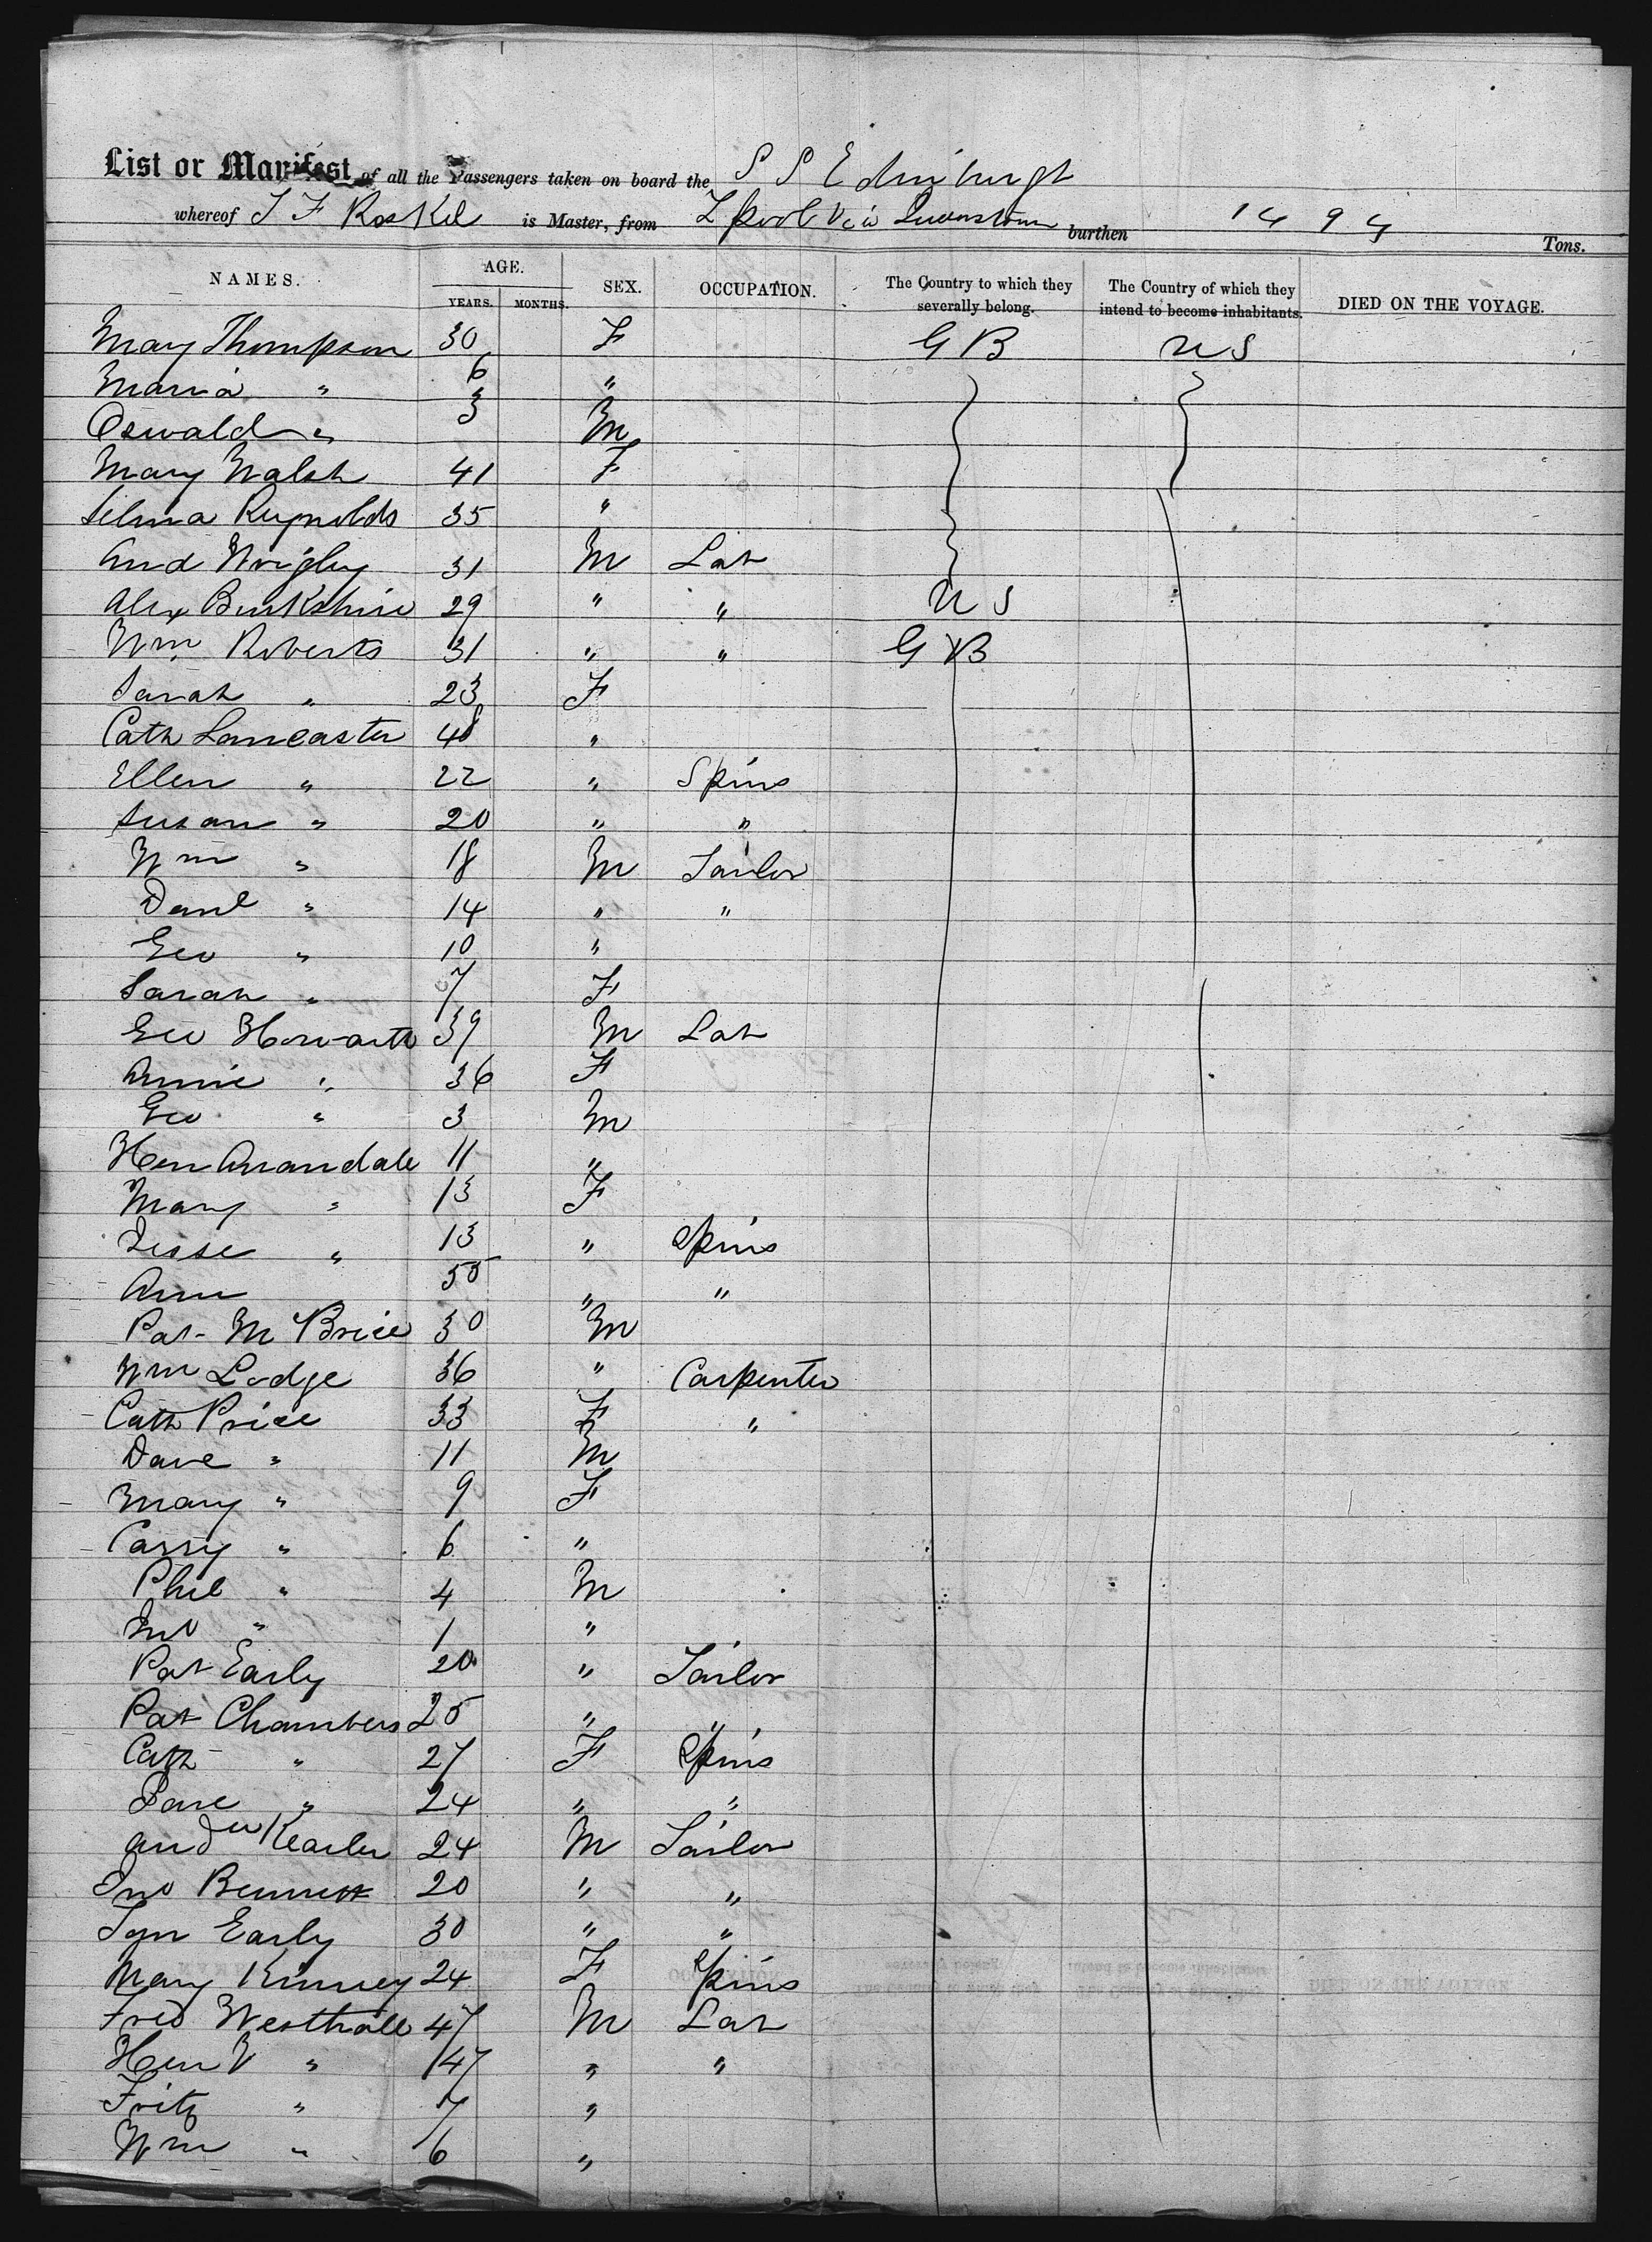 List or Manifest of all the Passengers taken on board the S S Edinburgh
whereof J F Roskel is Master, from Lpool Via Queenstown burthen 1494 Tons.
NAMES. AGE. YEARS. MONTHS. SEX. OCCUPATION. The Country to which they severally belong. The Country of which they intend to become inhabitants. DIED ON THE VOYAGE.
Mary Thompson 30 F G B U S
Maria " 6 "
Oswald " 3 M
Mary Walsh 41 F
Selina Reynolds 35 "
And Wrigley 31 M Lab
Alex Birkshire 29 " " U S
Wm Roberts 31 " " G B
Sarah " 23 F
Cath Lancaster 48 "
Ellen " 22 " Spins
Susan " 20 " "
Wm " 18 M Tailor
Danl " 14 " "
Geo " 10 "
Sarah " 7 F
Geo Howarth 39 M Lab
Annie " 36 F
Geo " 3 M
Hen Anandale 11 "
Mary " 13 F
Jesse " 13 " Spins
Ann 55 " "
Pat M Brice 30 M
Wm Lodge 36 " Carpenter
Cath Price 33 F "
Dave " 11 M
Mary " 9 F
Carry " 6 "
Phil " 4 M
Jno " 1 "
Pat Early 20 " Tailor
Pat Chambers 25 " "
Cath " 27 F Spins
Jane " 24 " "
Andw 24 M Tailor
Jno Bennett 20 " "
Early 30 " "
Mary Kinney 24 F Spins
Fred Westhall 47 M Lab
Hen V " 47 " "
Fritz " 7 "
Wm " 6 "